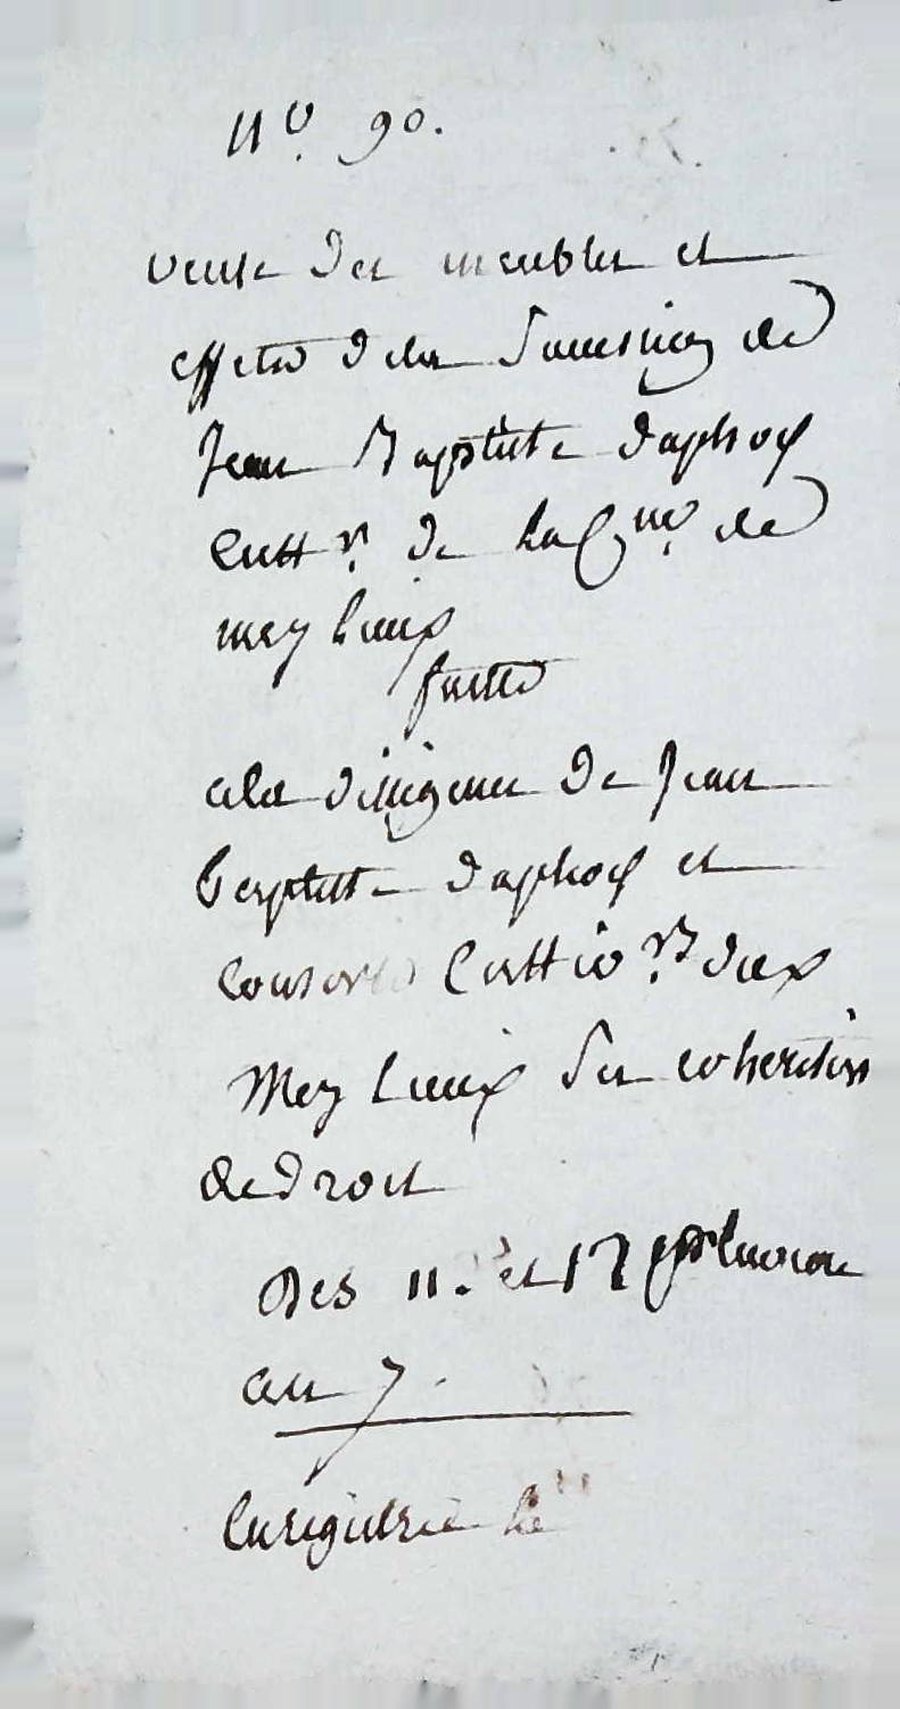 N° 90.
vente des meubles et
effets dela Succession de
Jean Baptiste daphoy
Cultr. de la Cne. de
mey lieux
faitte
ala diligence de Jean
baptiste daphoy et
consorts Culttivrs. deux
Mey lieux Ses coheritiers
de droit
Des 11. et 17 pluviose
an 7.
Enregistrée le